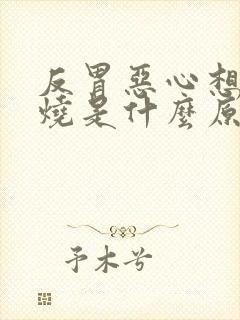 反胃惡心想
燒是什麼原
予木兮